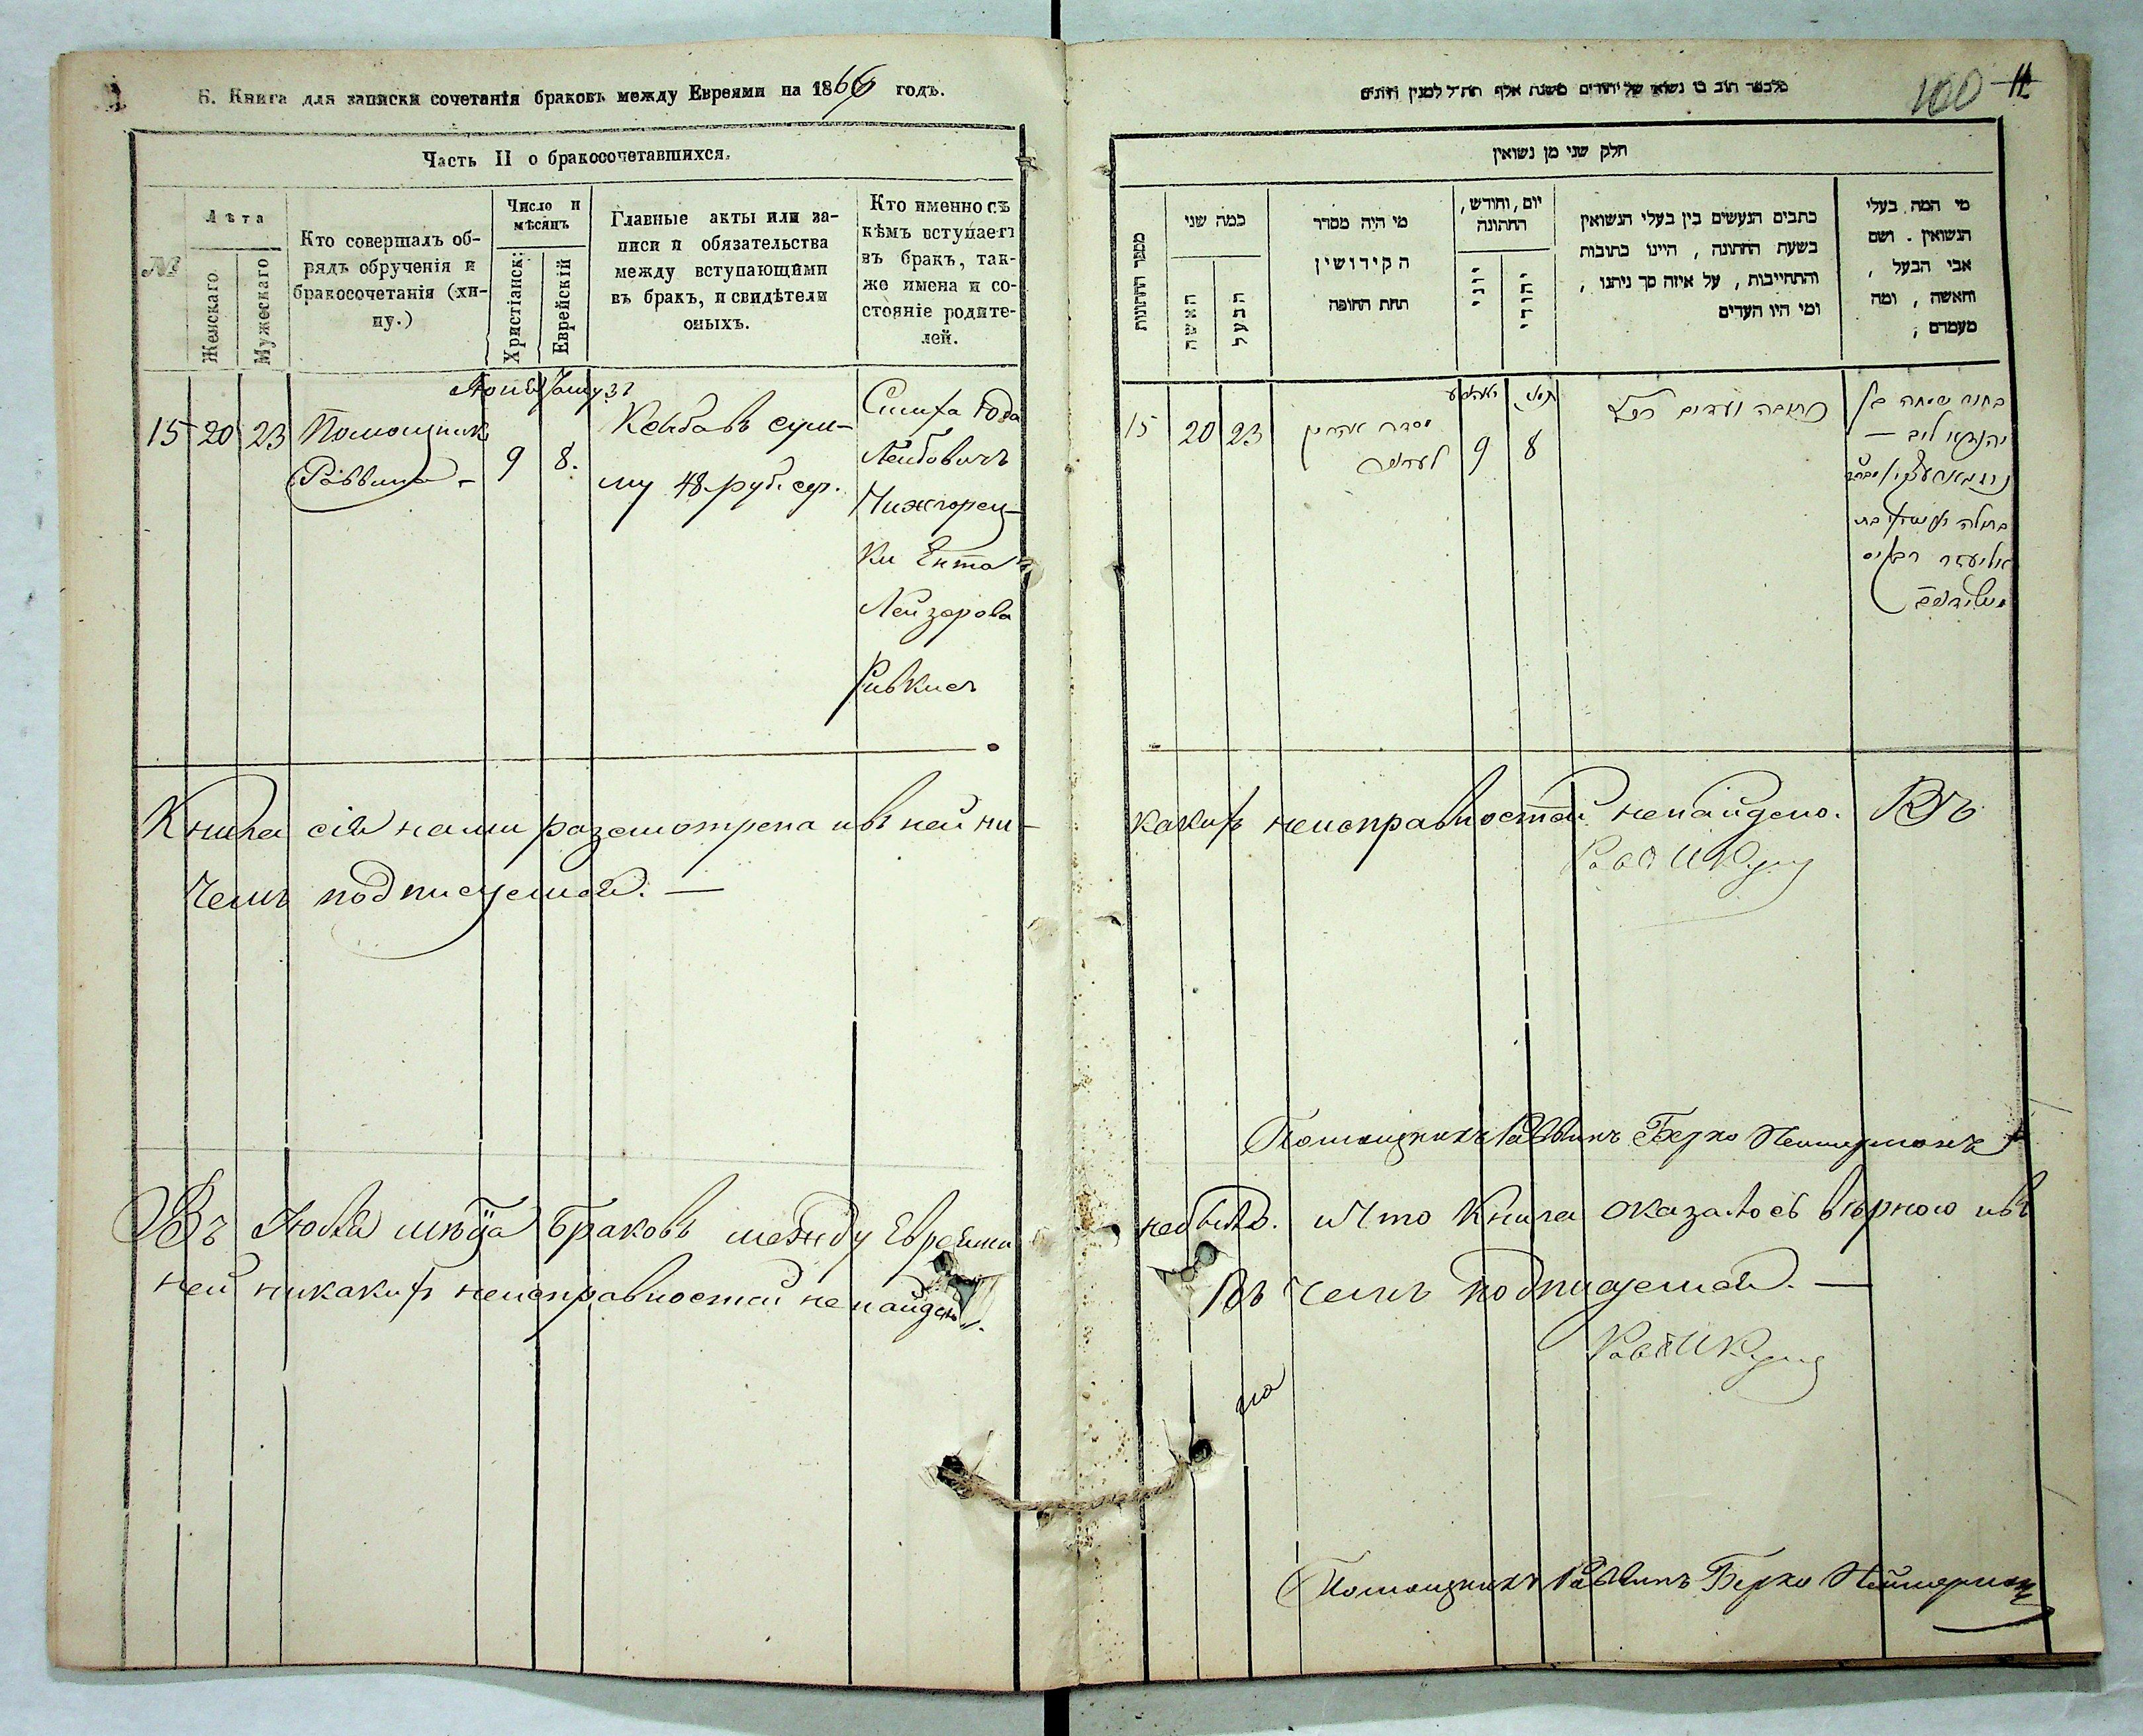 Б. Книга для записки сочетанія браковъ между Евреями на 1866 годъ.
Часть II о бракосочетавшихся.
№
Лѣта
Женскаго
Мужескаго
Кто совершалъ об-
рядъ обрученія и
бракосочетанія (хи-
пу.)
Число и
мѣсяцъ
Христіанск:
Еврейскій
Главные акты или за-
писи и обязательства
между вступающими
въ бракъ, и свидѣтели
оныхъ.
Кто именно съ
кѣмъ вступаетъ
въ бракъ, так-
же имена и со-
стояніе родите-
лей.
15 20 23
Помощник
Раввина
Іюня
9
Тамузъ
8.
Ксыба въ сум-
му 48 руб. сер.
Симха Юда
Лейбовичъ
Нижгорец-
ки Ента
Лейзерова
Ривкисъ
Книга сія нами разсмотрена ивъ ней ни-
чемъ подписуемся. —
Въ Іюлѣ мѣсяца браковъ между Евреями
ней никакихъ неисправностей ненайдено.
100 11
חלק שני מן נשואין
מספר החתונות
כמה שני
האשה
הבעל
מי היה מסדר
הקידושין
תחת החופה
יום, וחודש,
החתונה
יוני
יהודי
כתבים הנעשים בין בעלי הנשואין
בשעת החתונה , היינו כתובות
והתחייבות , על איזה סך ניתנו ,
ומי היו העדים
מי המה בעלי
הנשואין . ושם
אבי הבעל ,
והאשה , ומה
מעמדם ;
15 20 23
9
8
כתובה ועדים
בחור שמחה
יהודא ליב —
אליעזר
какихъ неисправностей ненайдено. Въ
Помощникъ Раввинъ Берко Неймерманъ
небыло. ичто Книга оказалось вѣрною ивъ
Въ чемъ подписуемся. —
Помощникъ Раввинъ Берко Неймерманъ